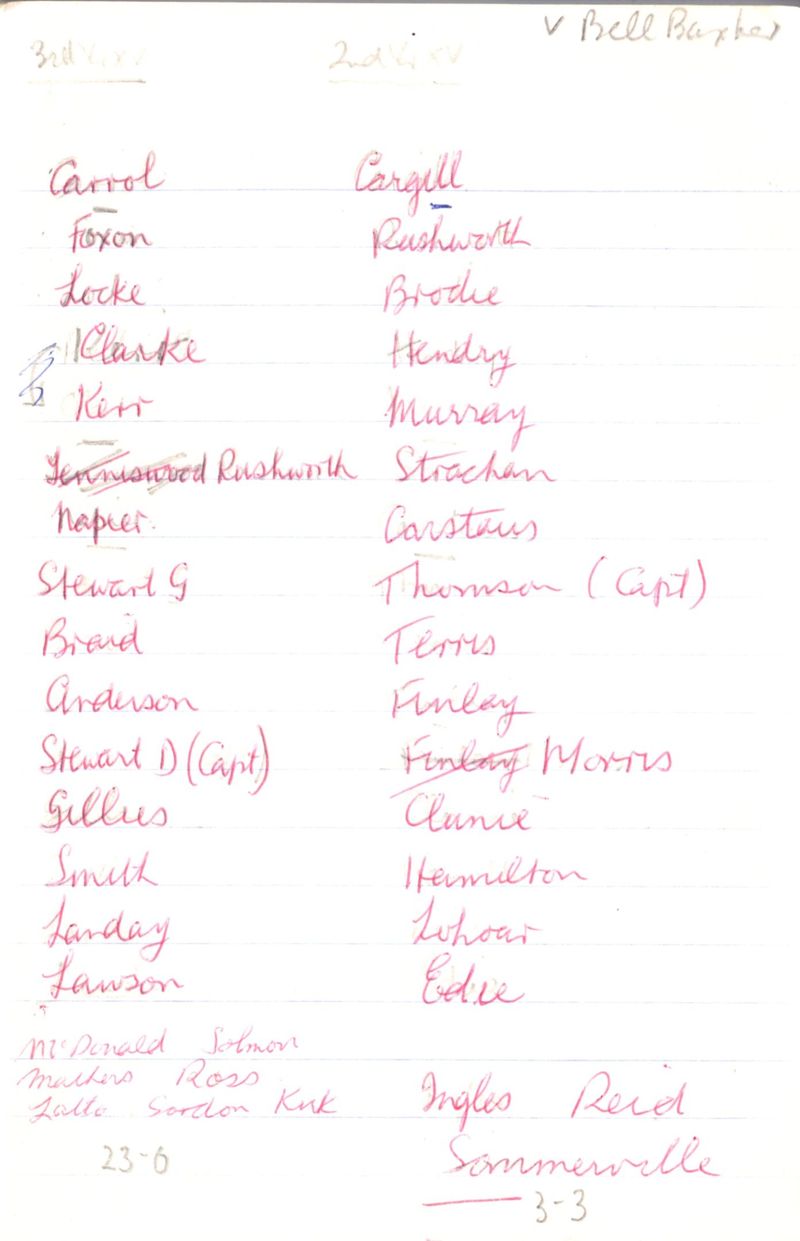 v Bell Baxter
3rd XV 2nd XV
Carrol Cargill
Foxon Rushworth
Locke Brodie
Clarke Hendry
Kerr Murray
Tenniswood Rushworth Strachan
Napier. Carstairs
Stewart G Thomson (Capt)
Braid Terris
Anderson Finlay
Stewart D (Capt) Finlay Morris
Gillies Clunie
Smith Hamilton
Landay Lohoar
Lawson Edie
McDonald Solmon
Mathers Ross
Latto Gordon Kirk Ingles Reid
23-6 Sommerville
3-3